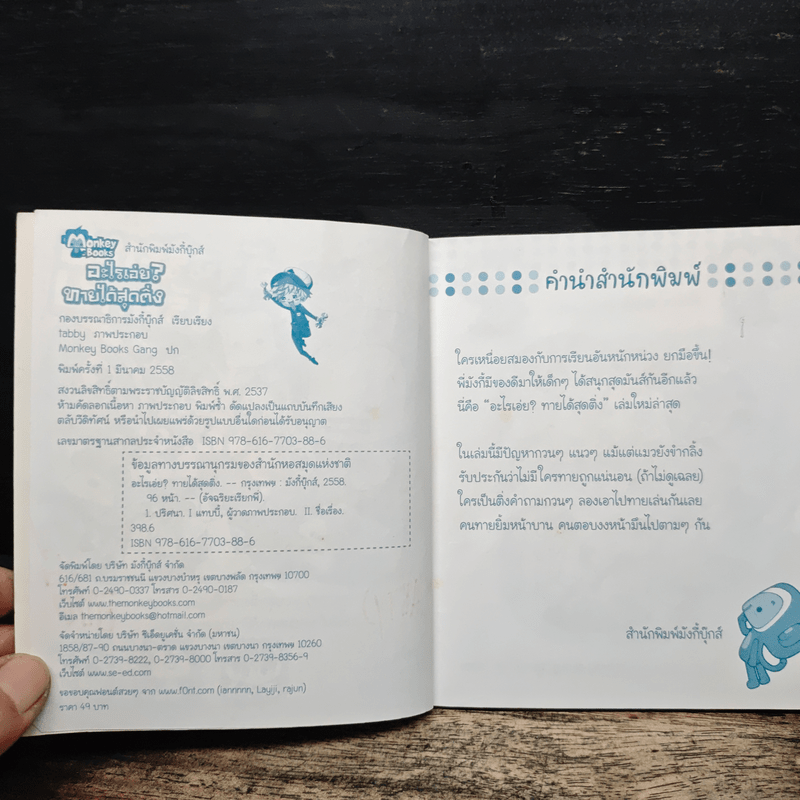 Monkey Books สำนักพิมพ์มังกี้บุ๊กส์
อะไรเอ่ย?
ทายได้สุดติ่ง
กองบรรณาธิการมังกี้บุ๊กส์ เรียบเรียง
tabby ภาพประกอบ
Monkey Books Gang ปก
พิมพ์ครั้งที่ 1 มีนาคม 2558
สงวนลิขสิทธิ์ตามพระราชบัญญัติลิขสิทธิ์ พ.ศ. 2537
ห้ามคัดลอกเนื้อหา ภาพประกอบ พิมพ์ซ้ำ ดัดแปลงเป็นแถบบันทึกเสียง
ตลับวีดิทัศน์ หรือนำไปเผยแพร่ด้วยรูปแบบอื่นใดก่อนได้รับอนุญาต
เลขมาตรฐานสากลประจำหนังสือ ISBN 978-616-7703-88-6
ข้อมูลทางบรรณานุกรมของสำนักหอสมุดแห่งชาติ
อะไรเอ่ย? ทายได้สุดติ่ง. -- กรุงเทพฯ : มังกี้บุ๊กส์, 2558.
96 หน้า. -- (อัจฉริยะเรียกพี่).
1. ปริศนา. I แทบบี้, ผู้วาดภาพประกอบ. II. ชื่อเรื่อง.
398.6
ISBN 978-616-7703-88-6
จัดพิมพ์โดย บริษัท มังกี้บุ๊กส์ จำกัด
616/681 ถ.บรมราชชนนี แขวงบางบำหรุ เขตบางพลัด กรุงเทพฯ 10700
โทรศัพท์ 0-2490-0337 โทรสาร 0-2490-0187
เว็บไซต์ www.themonkeybooks.com
อีเมล themonkeybooks@hotmail.com
จัดจำหน่ายโดย บริษัท ซีเอ็ดยูเคชั่น จำกัด (มหาชน)
1858/87-90 ถนนบางนา-ตราด แขวงบางนา เขตบางนา กรุงเทพฯ 10260
โทรศัพท์ 0-2739-8222, 0-2739-8000 โทรสาร 0-2739-8356-9
เว็บไซต์ www.se-ed.com
ขอขอบคุณฟอนต์สวยๆ จาก www.f0nt.com (iannnnn, Layiji, rajun)
ราคา 49 บาท
คำนำสำนักพิมพ์
ใครเหนื่อยสมองกับการเรียนอันหนักหน่วง ยกมือขึ้น!
พี่มังกี้มีของดีมาให้เด็กๆ ได้สนุกสุดมันส์กันอีกแล้ว
นี่คือ “อะไรเอ่ย? ทายได้สุดติ่ง” เล่มใหม่ล่าสุด
ในเล่มนี้มีปัญหากวนๆ แนวๆ แม้แต่แมวยังขำกลิ้ง
รับประกันว่าไม่มีใครทายถูกแน่นอน (ถ้าไม่ดูเฉลย)
ใครเป็นติ่งคำถามกวนๆ ลองเอาไปทายเล่นกันเลย
คนทายยิ้มหน้าบาน คนตอบงงหน้ามึนไปตามๆ กัน
สำนักพิมพ์มังกี้บุ๊กส์